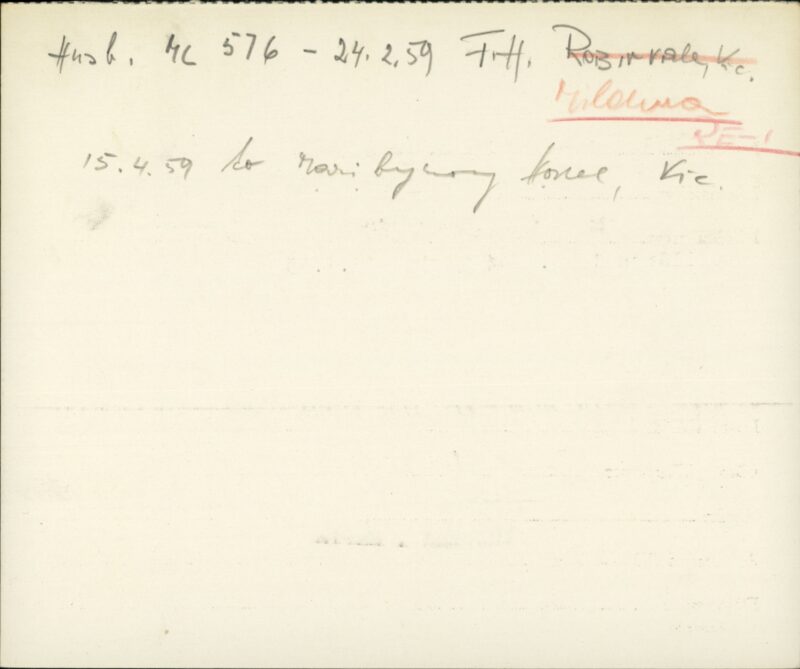 Husb. MC 576 - 24.2.59 F.H. Robinvale, Vic.
Mildura
RE-1
15.4.59 to Maribyrnong Hostel, Vic.